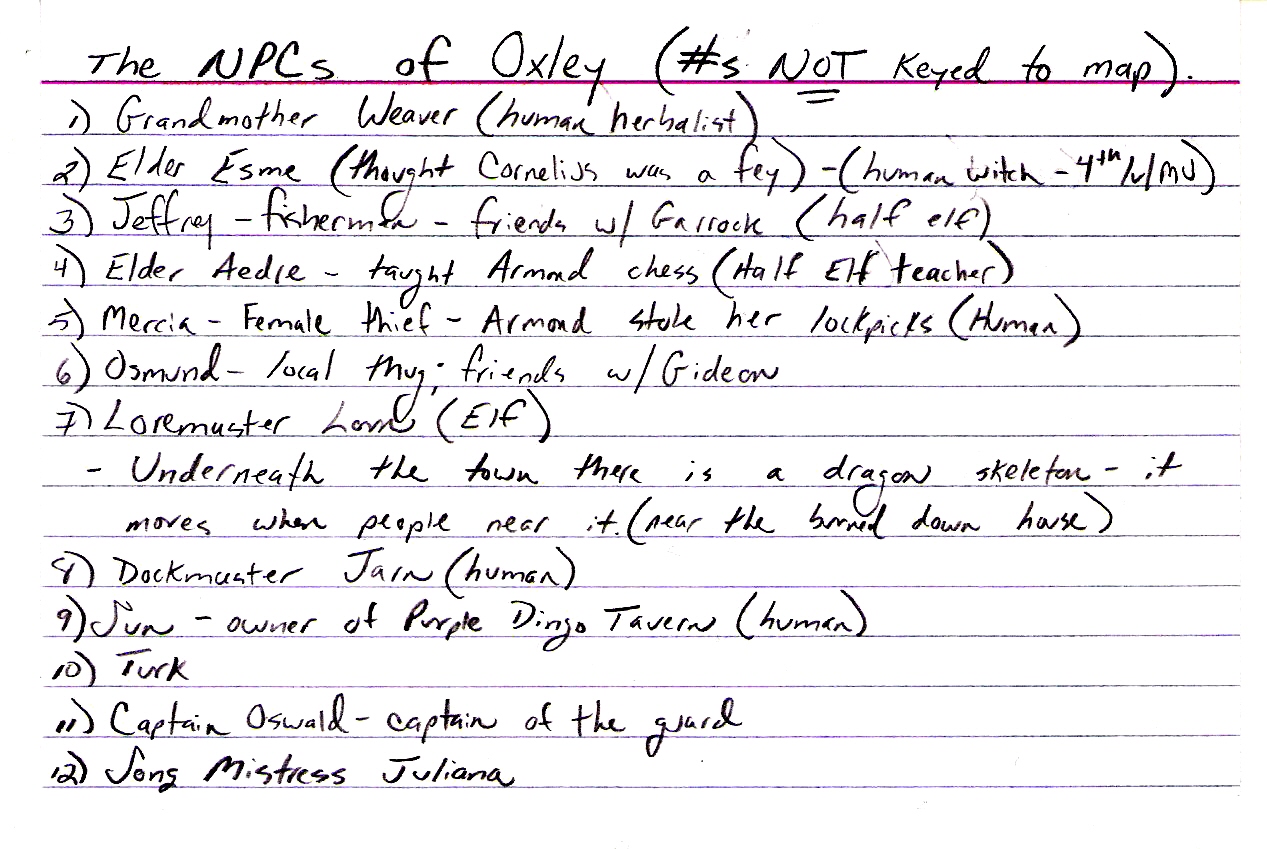 The NPCs of Oxley (#s NOT Keyed to map).
1) Grandmother Weaver (human herbalist)
2) Elder Esme (thought Cornelius was a fey) - (human witch - 4th lv/MU)
3) Jeffrey - fisherman - friends w/ Garrock (half elf)
4) Elder Aedre - taught Armond chess (Half Elf teacher)
5) Mercia - Female thief - Armond stole her lockpicks (Human)
6) Osmund - local thug; friends w/ Gideon
7) Loremaster (Elf)
- Underneath the town there is a dragon skeleton - it
moves when people near it. (near the burned down house)
8) Dockmaster Jarn (human)
9) Sun - owner of Purple Dingo Tavern (human)
10) Turk
11) Captain Oswald - captain of the guard
12) Song Mistress Juliana